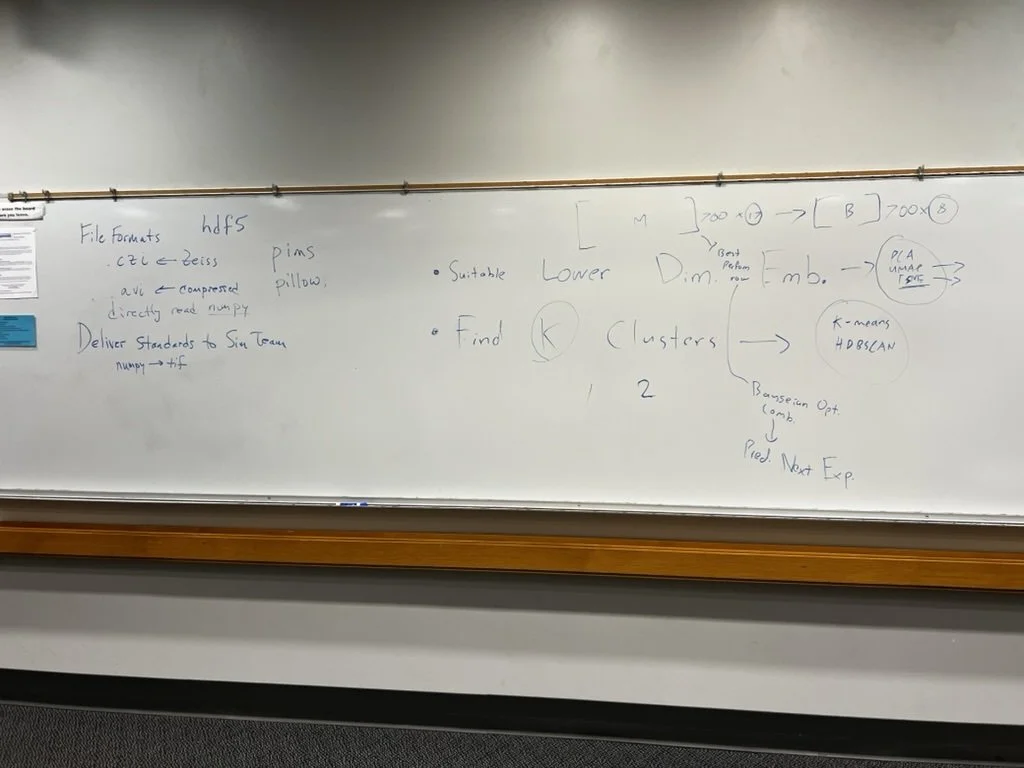 erase the board
re you leave.
File Formats hdf5
.CZI ← Zeiss pims
avi ← compressed pillow,
directly read numpy
Deliver Standards to Sim Team
numpy → tif
[ M ] 700 × 17 → [ B ] 700 × 8
Best
Perform
row
• Suitable Lower Dim. Emb. →
PCA
UMAP
TSNE
• Find K Clusters →
K-means
HDBSCAN
1 2
Opt.
Comb.
Pred. Next Exp.